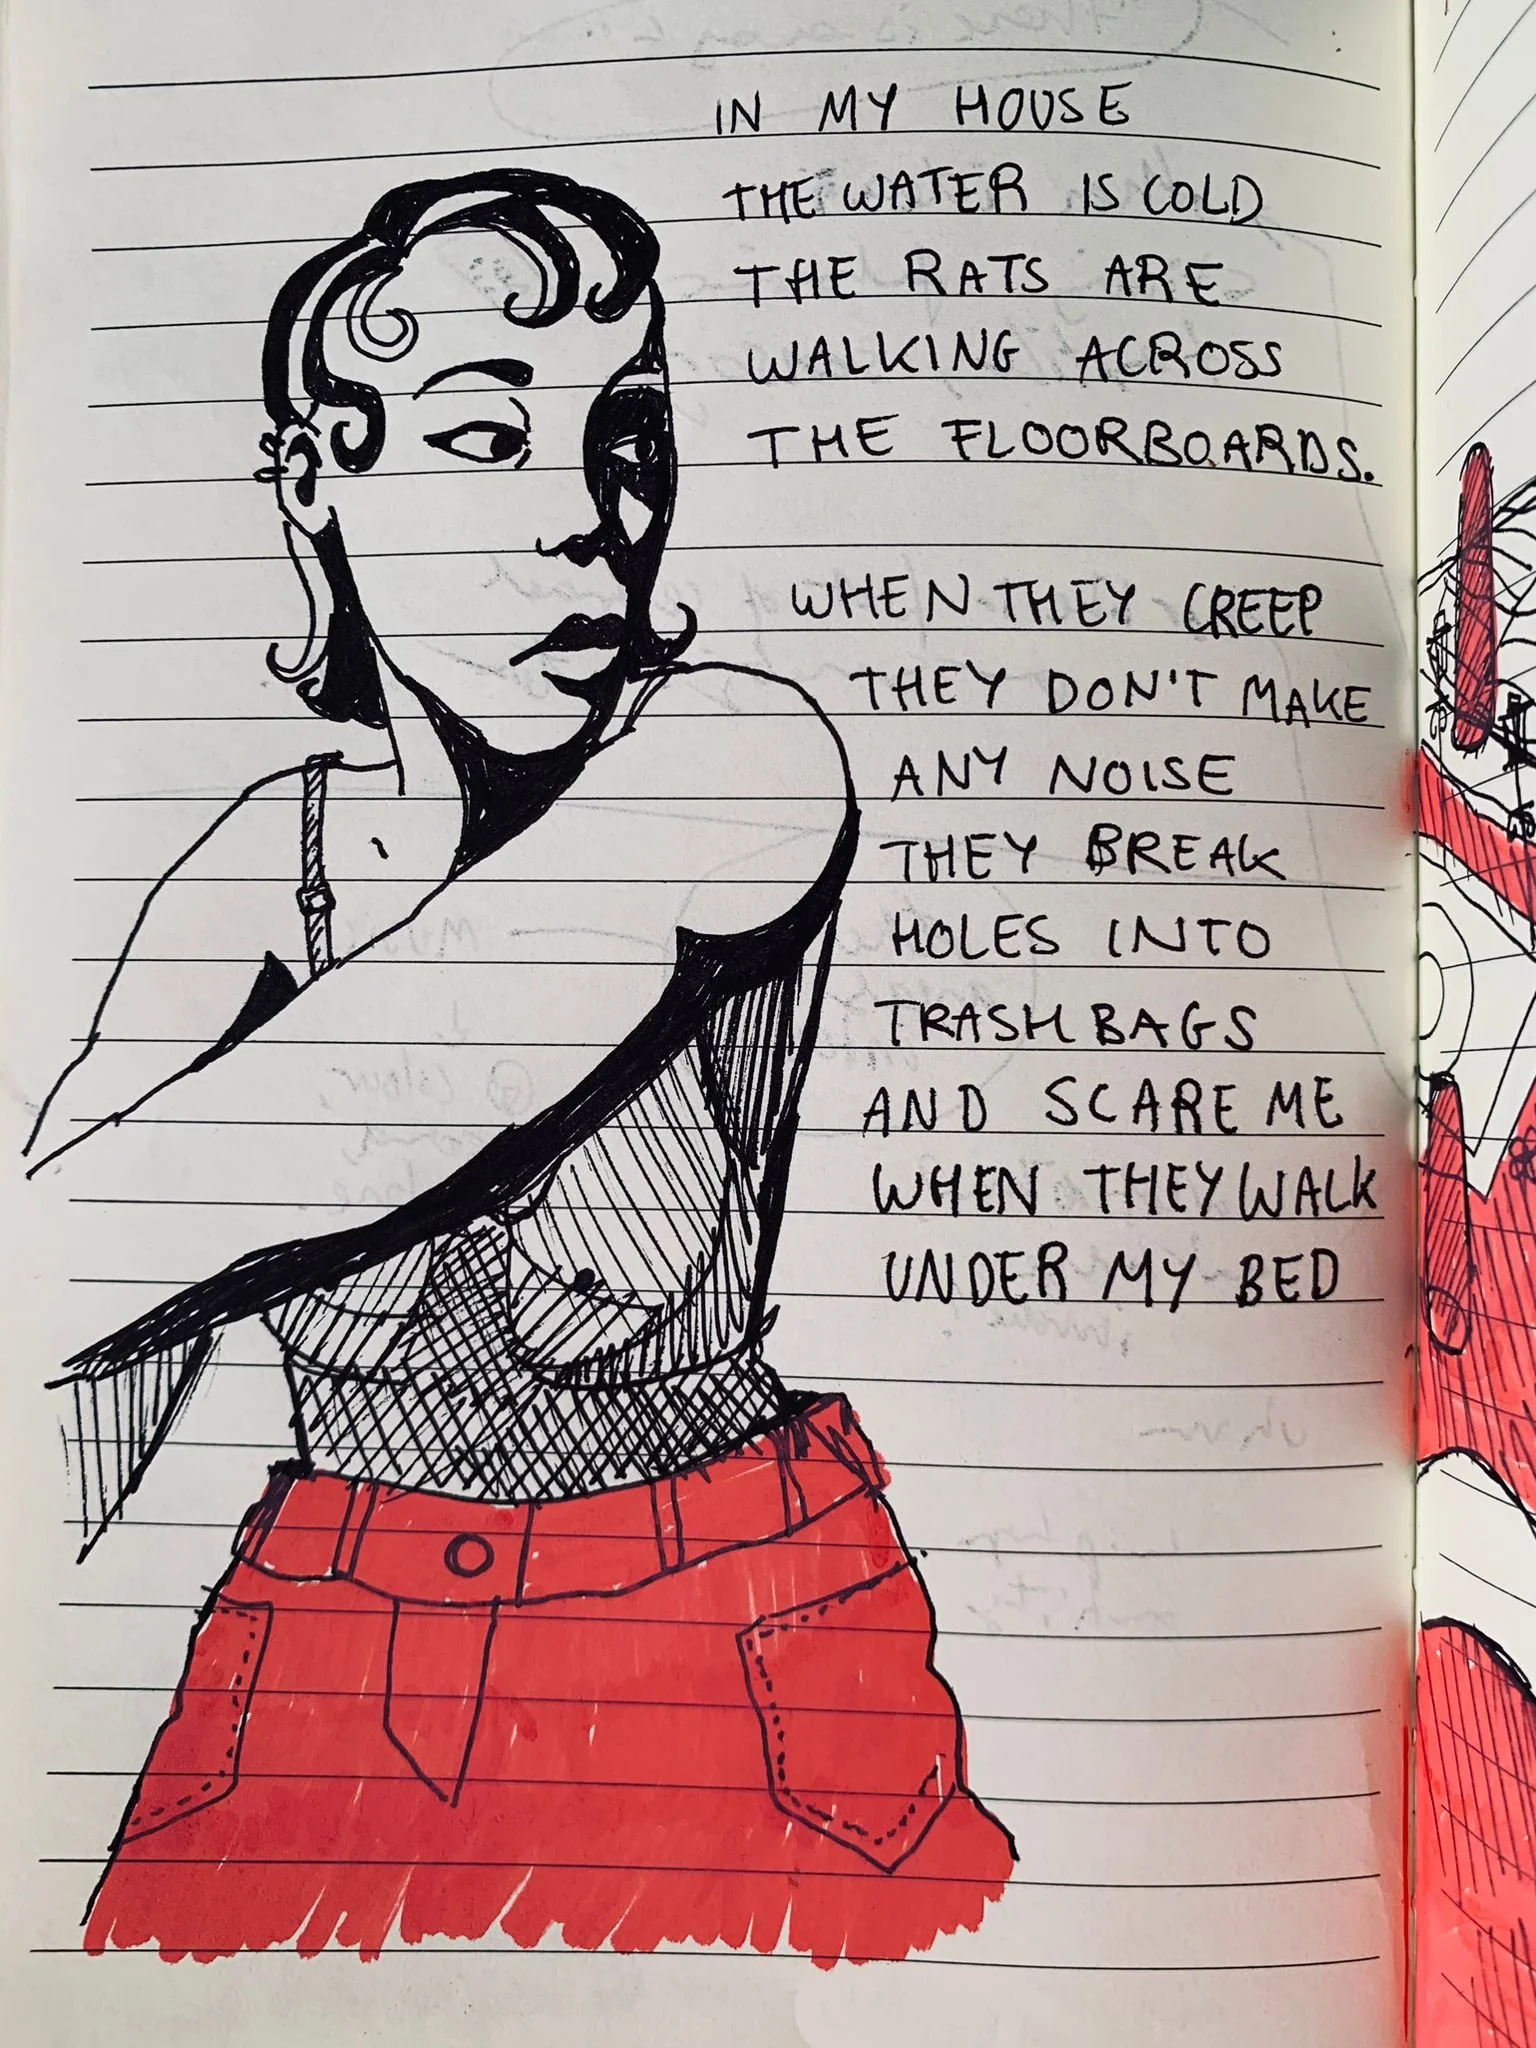 IN MY HOUSE
THE WATER IS COLD
THE RATS ARE
WALKING ACROSS
THE FLOORBOARDS.
WHEN THEY CREEP
THEY DON'T MAKE
ANY NOISE
THEY BREAK
HOLES INTO
TRASH BAGS
AND SCARE ME
WHEN THEY WALK
UNDER MY BED